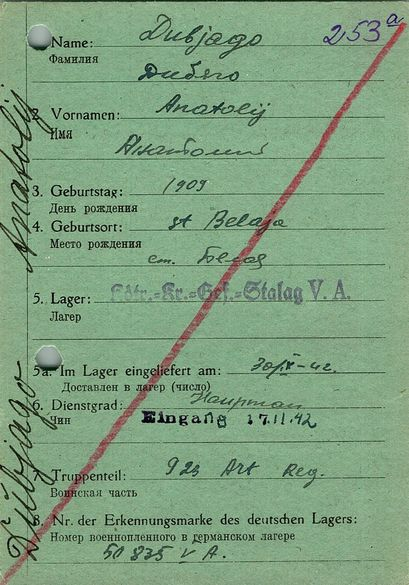 1. Name: Dubjago 253a
Фамилия
Дибяго
2. Vornamen: Anatolij
Имя
3. Geburtstag: 1909
День рождения
4. Geburtsort: st Belaja
Место рождения
ст. Белая
5. Lager: Fstr.=Kr.=Gef.=Stalag V. A.
Лагерь
5a. Im Lager eingeliefert am:
Доставлен в лагерь (число)
6. Dienstgrad: Hauptman
Чин
Eingang 17.11.42
7. Truppenteil: 923 Art Reg.
Воинская часть
8. Nr. der Erkennungsmarke des deutschen Lagers:
Номер военнопленного в германском лагере
50835 V A.
Dubjago Anatolij